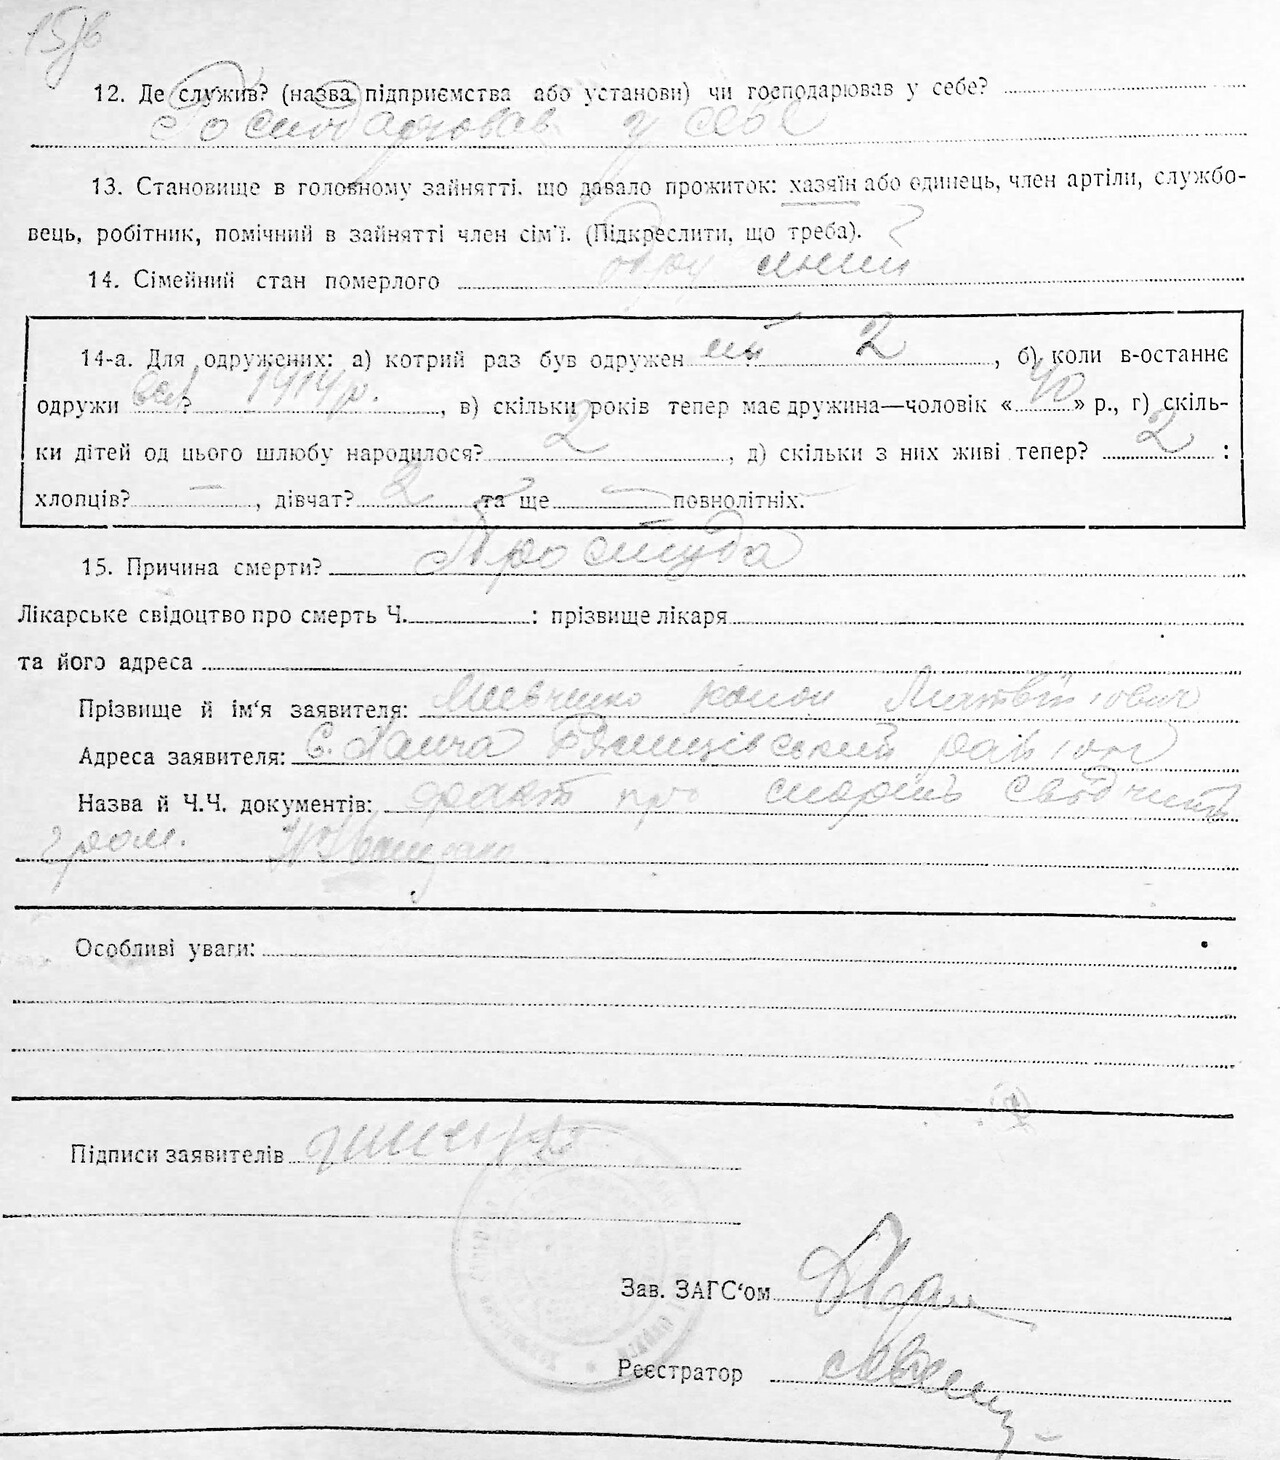 12. Де служив? (назва підприємства або установи) чи господарював у себе?
Господарював у себе
13. Становище в головному зайнятті. що давало прожиток: хазяїн або одинець, член артіли, службо-
вець, робітник, помічний в зайнятті член сім'ї. (Підкреслити, що треба).
14. Сімейний стан померлого
14-а. Для одружених: а) котрий раз був одружен ий 2, б) коли в-останнє
одружи вся? 1914 р., в) скільки років тепер має дружина—чоловік «40» р., г) скіль-
ки дітей од цього шлюбу народилося? 2, д) скільки з них живі тепер? 2 :
хлопців? —, дівчат? 2 та ще — повнолітніх.
15. Причина смерти? Простуда
Лікарське свідоцтво про смерть Ч. : прізвище лікаря
та його адреса
Прізвище й ім'я заявителя: Шевченко
Адреса заявителя: С.
Назва й Ч.Ч. документів: факт про смерть
гром.
Особливі уваги:
Підписи заявителів
Зав. ЗАГС'ом
Реєстратор